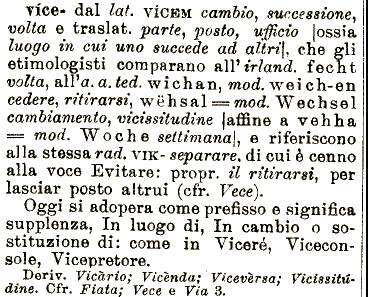 více- dal lat. VÌCEM cambio, successione,
volta e traslat. parte, posto, ufficio [ossia
luogo in cui uno succede ad altri], che gli
etimologisti comparano all'irland. fecht
volta, all'a. a. ted. wichan, mod. weich-en
cedere, ritirarsi, wëhsal = mod. Wechsel
cambiamento, vicissitudine [affine a vehha
= mod. Woche settimana], e riferiscono
alla stessa rad. VIK- separare, di cui è cenno
alla voce Evitare: propr. il ritirarsi, per
lasciar posto altrui (cfr. Vece).
Oggi si adopera come prefisso e significa
supplenza, In luogo di, In cambio o so-
stituzione di: come in Viceré, Vicecon-
sole, Vicepretore.
Deriv. Vicàrio; Vicènda; Vicevèrsa; Vicissitú-
dine. Cfr. Fiata; Vece e Via 3.